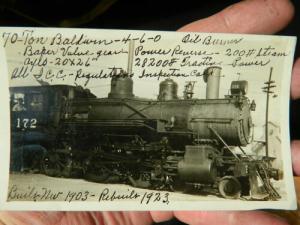 70-Ton Baldwin-4-6-0 Oil Burner
Baper Valve gear - Power Reverse - 200# Steam
Cyls-20x26" 28200# Tractive Power
All I.C.C. Regulations Inspection Card
172
Built New 1903 - Rebuilt 1923.